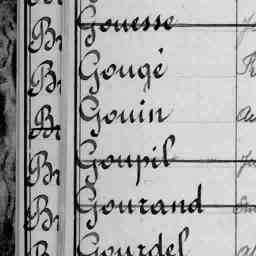 Br Gouesse
Br Gougé
Br Gouin
Br Goupil
Br Gourand
Br Gourdel